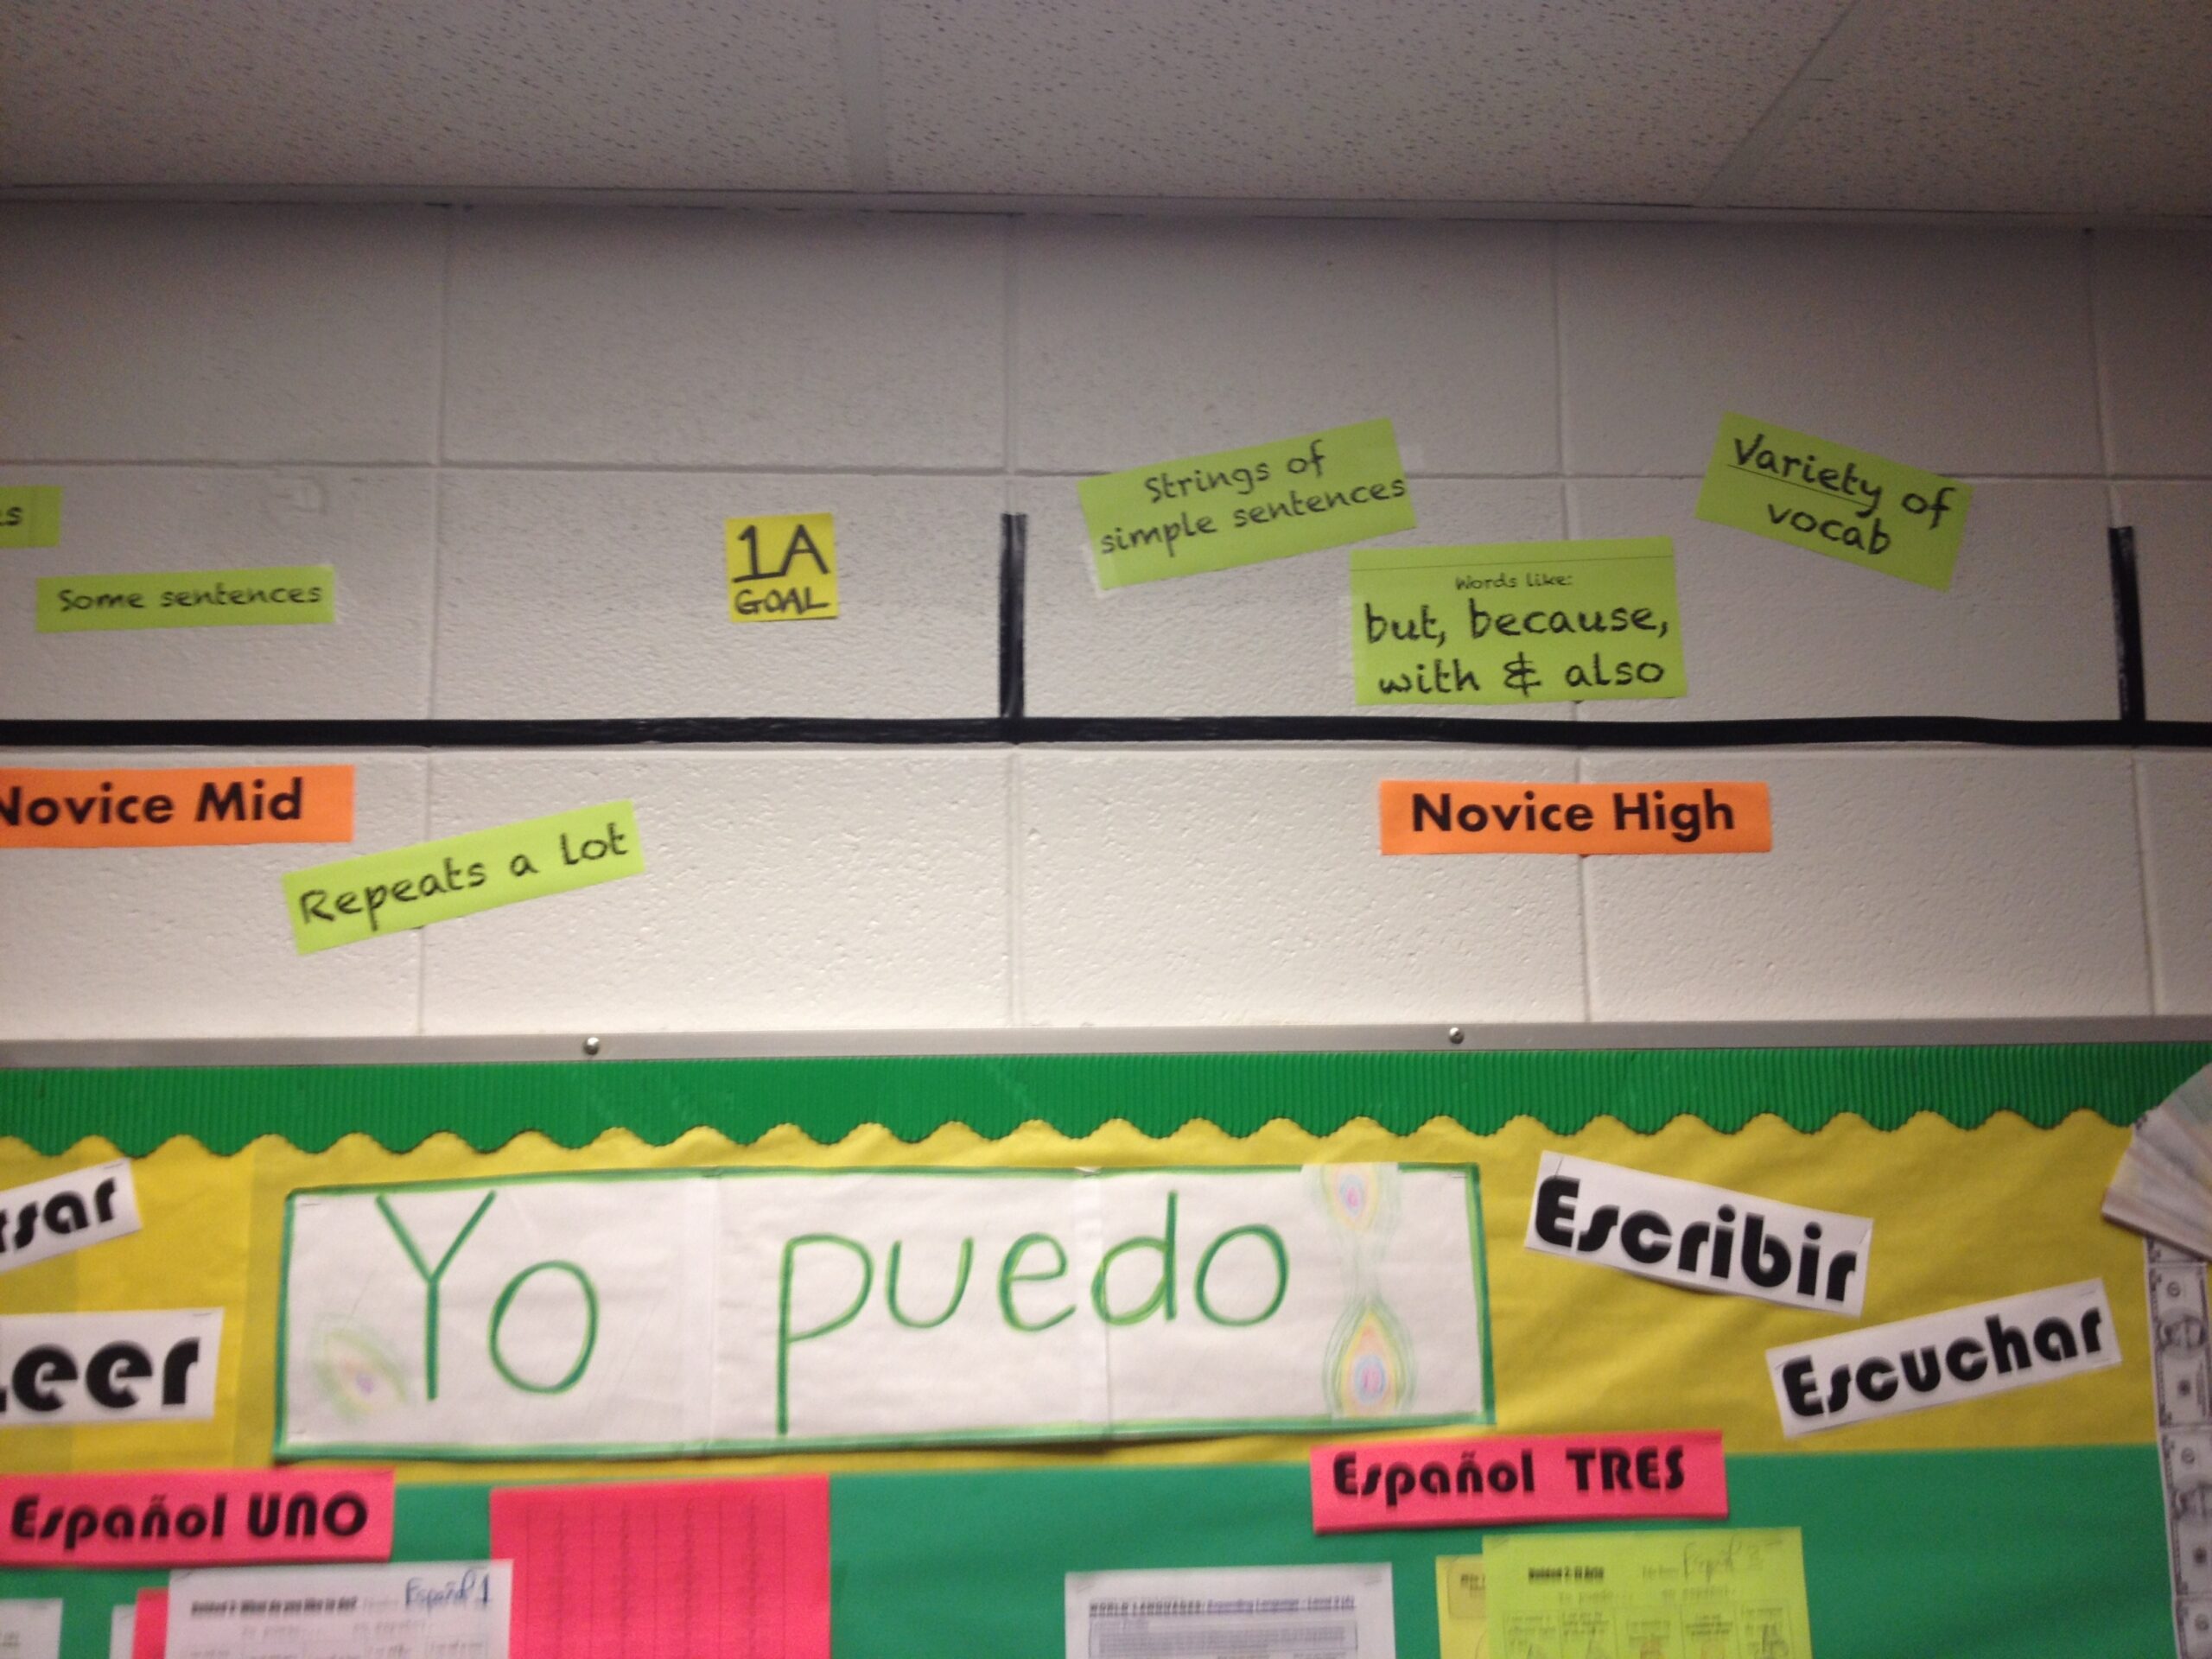 Some sentences
1A
GOAL
Strings of
simple sentences
Words like:
but, because,
with & also
Variety of
vocab
Novice Mid
Repeats a lot
Novice High
Yo puedo
Leer
Escribir
Escuchar
Español UNO
Español TRES
Español 1